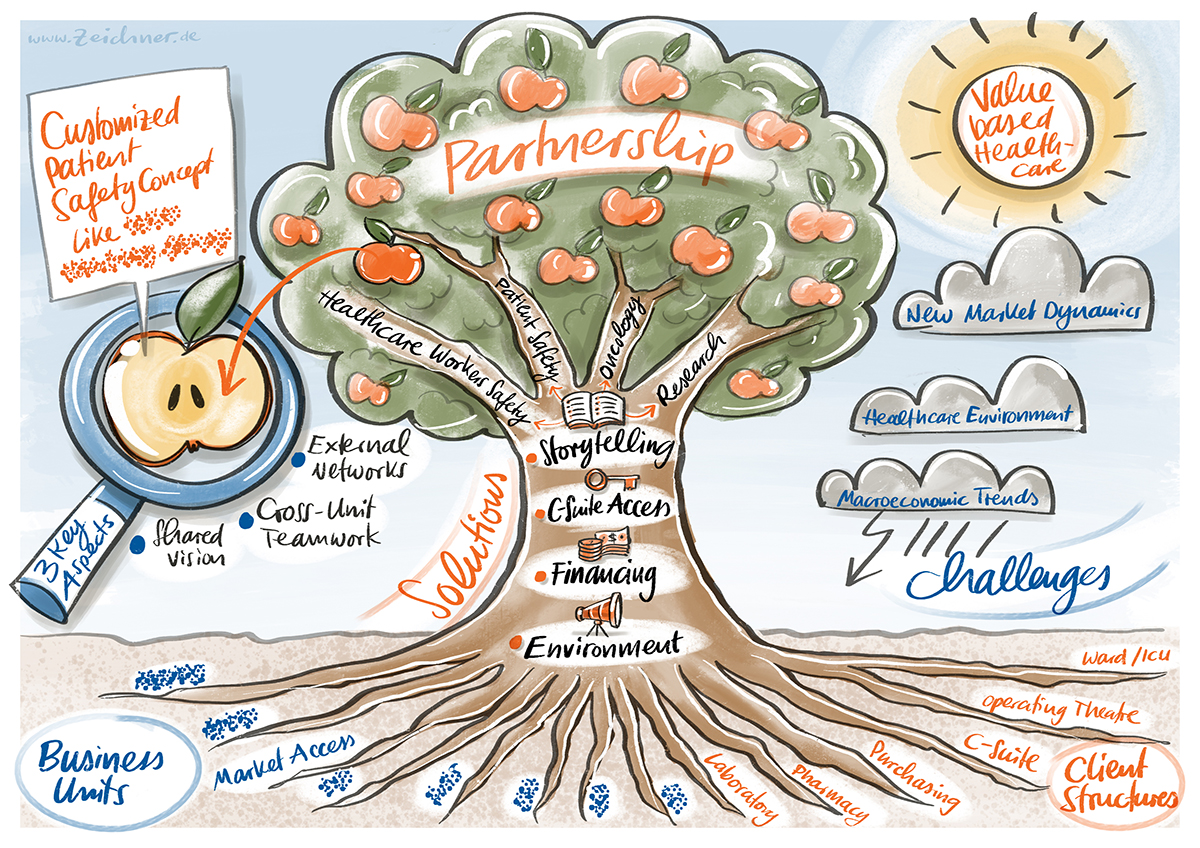 www.zeichner.de
Customized
Patient
Safety Concept
like
Partnership
Value
based
Health-
care
New Market Dynamics
Healthcare Environment
Macroeconomic Trends
Challenges
Healthcare Worker Safety
Patient Safety
Oncology
Research
Storytelling
C-Suite Access
Financing
Environment
Solutions
External
Networks
Cross-Unit
Teamwork
Shared
Vision
3 Key
Aspects
Business
Units
Market Access
Laboratory
Pharmacy
Purchasing
C-Suite
Operating Theatre
Ward/ICU
Client
Structures